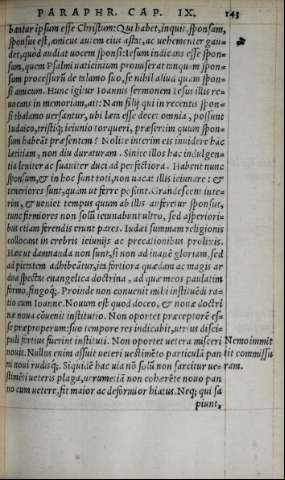 PARAPHR. CAP. IX. 143
bantur ipsum esse Christum: Qui habet, inquit, sponsam,
sponsus est, amicus autem eius astãs, ac uehementer gau
det, quòd audiat uocem sponsi: Iesum indicans esse spon-
sum, quem Psalmi uaticinium promiserat tanquam spon-
sum processurũ de talamo suo, se nihil aliud quàm spon-
si amicum. Hunc igitur Ioannis sermonem Iesus illis re-
uocans in memoriam, ait: Nam filij qui in recentis spon-
si thalamo uersantur, ubi læta esse decet omnia, possunt
Iudaico, tristiq; ieiunio torqueri, præsertim quum spon-
sum habeãt præsentem? Nolite interim eis inuidere hãc
lætitiam, non diu duraturam. Sinite illos hac indulgen-
tia leniter ac suauiter duci ad perfectiora. Habent nunc
sponsum, & in hoc sunt toti, non uacat illis ieiunare: &
teneriores sunt, quàm ut ferre possint. Grandescent inte-
rim, & ueniet tempus quum ab illis auferetur sponsus,
tunc firmiores non solũ ieiunabunt ultro, sed asperiori-
bus etiam ferendis erunt pares. Iudæi summam religionis
collocant in crebris ieiunijs ac precationibus prolixis.
Hæc ut damnanda non sunt, si non ad inanẽ gloriam, sed
ad pietatem adhibeãtur, ita fortiora quædam ac magis ar
dua spectat euangelica doctrina, ad quæ meos paulatim
formo, fingoq;. Proinde non conuenit mihi instituẽdi ra-
tio cum Ioanne. Nouum est quod doceo, & nouæ doctri
næ noua cõuenit institutio. Non oportet præceptorẽ es-
se præproperum: suo tempore res indicabit, utrius disci-
puli fortius fuerint instituti. Non oportet uetera misceri
nouis. Nullus enim assuit ueteri uestimẽto particulã pan
ni noui rudisq;. Siquidẽ hac uia nõ solũ non sarcitur ue-
stimẽti ueteris plaga, uerumetiã non coherẽte nouo pan
no cum uetere, fit maior ac deformior hiatus. Neq; qui sa
piunt,
Nemo immit
tit commissu
ram.